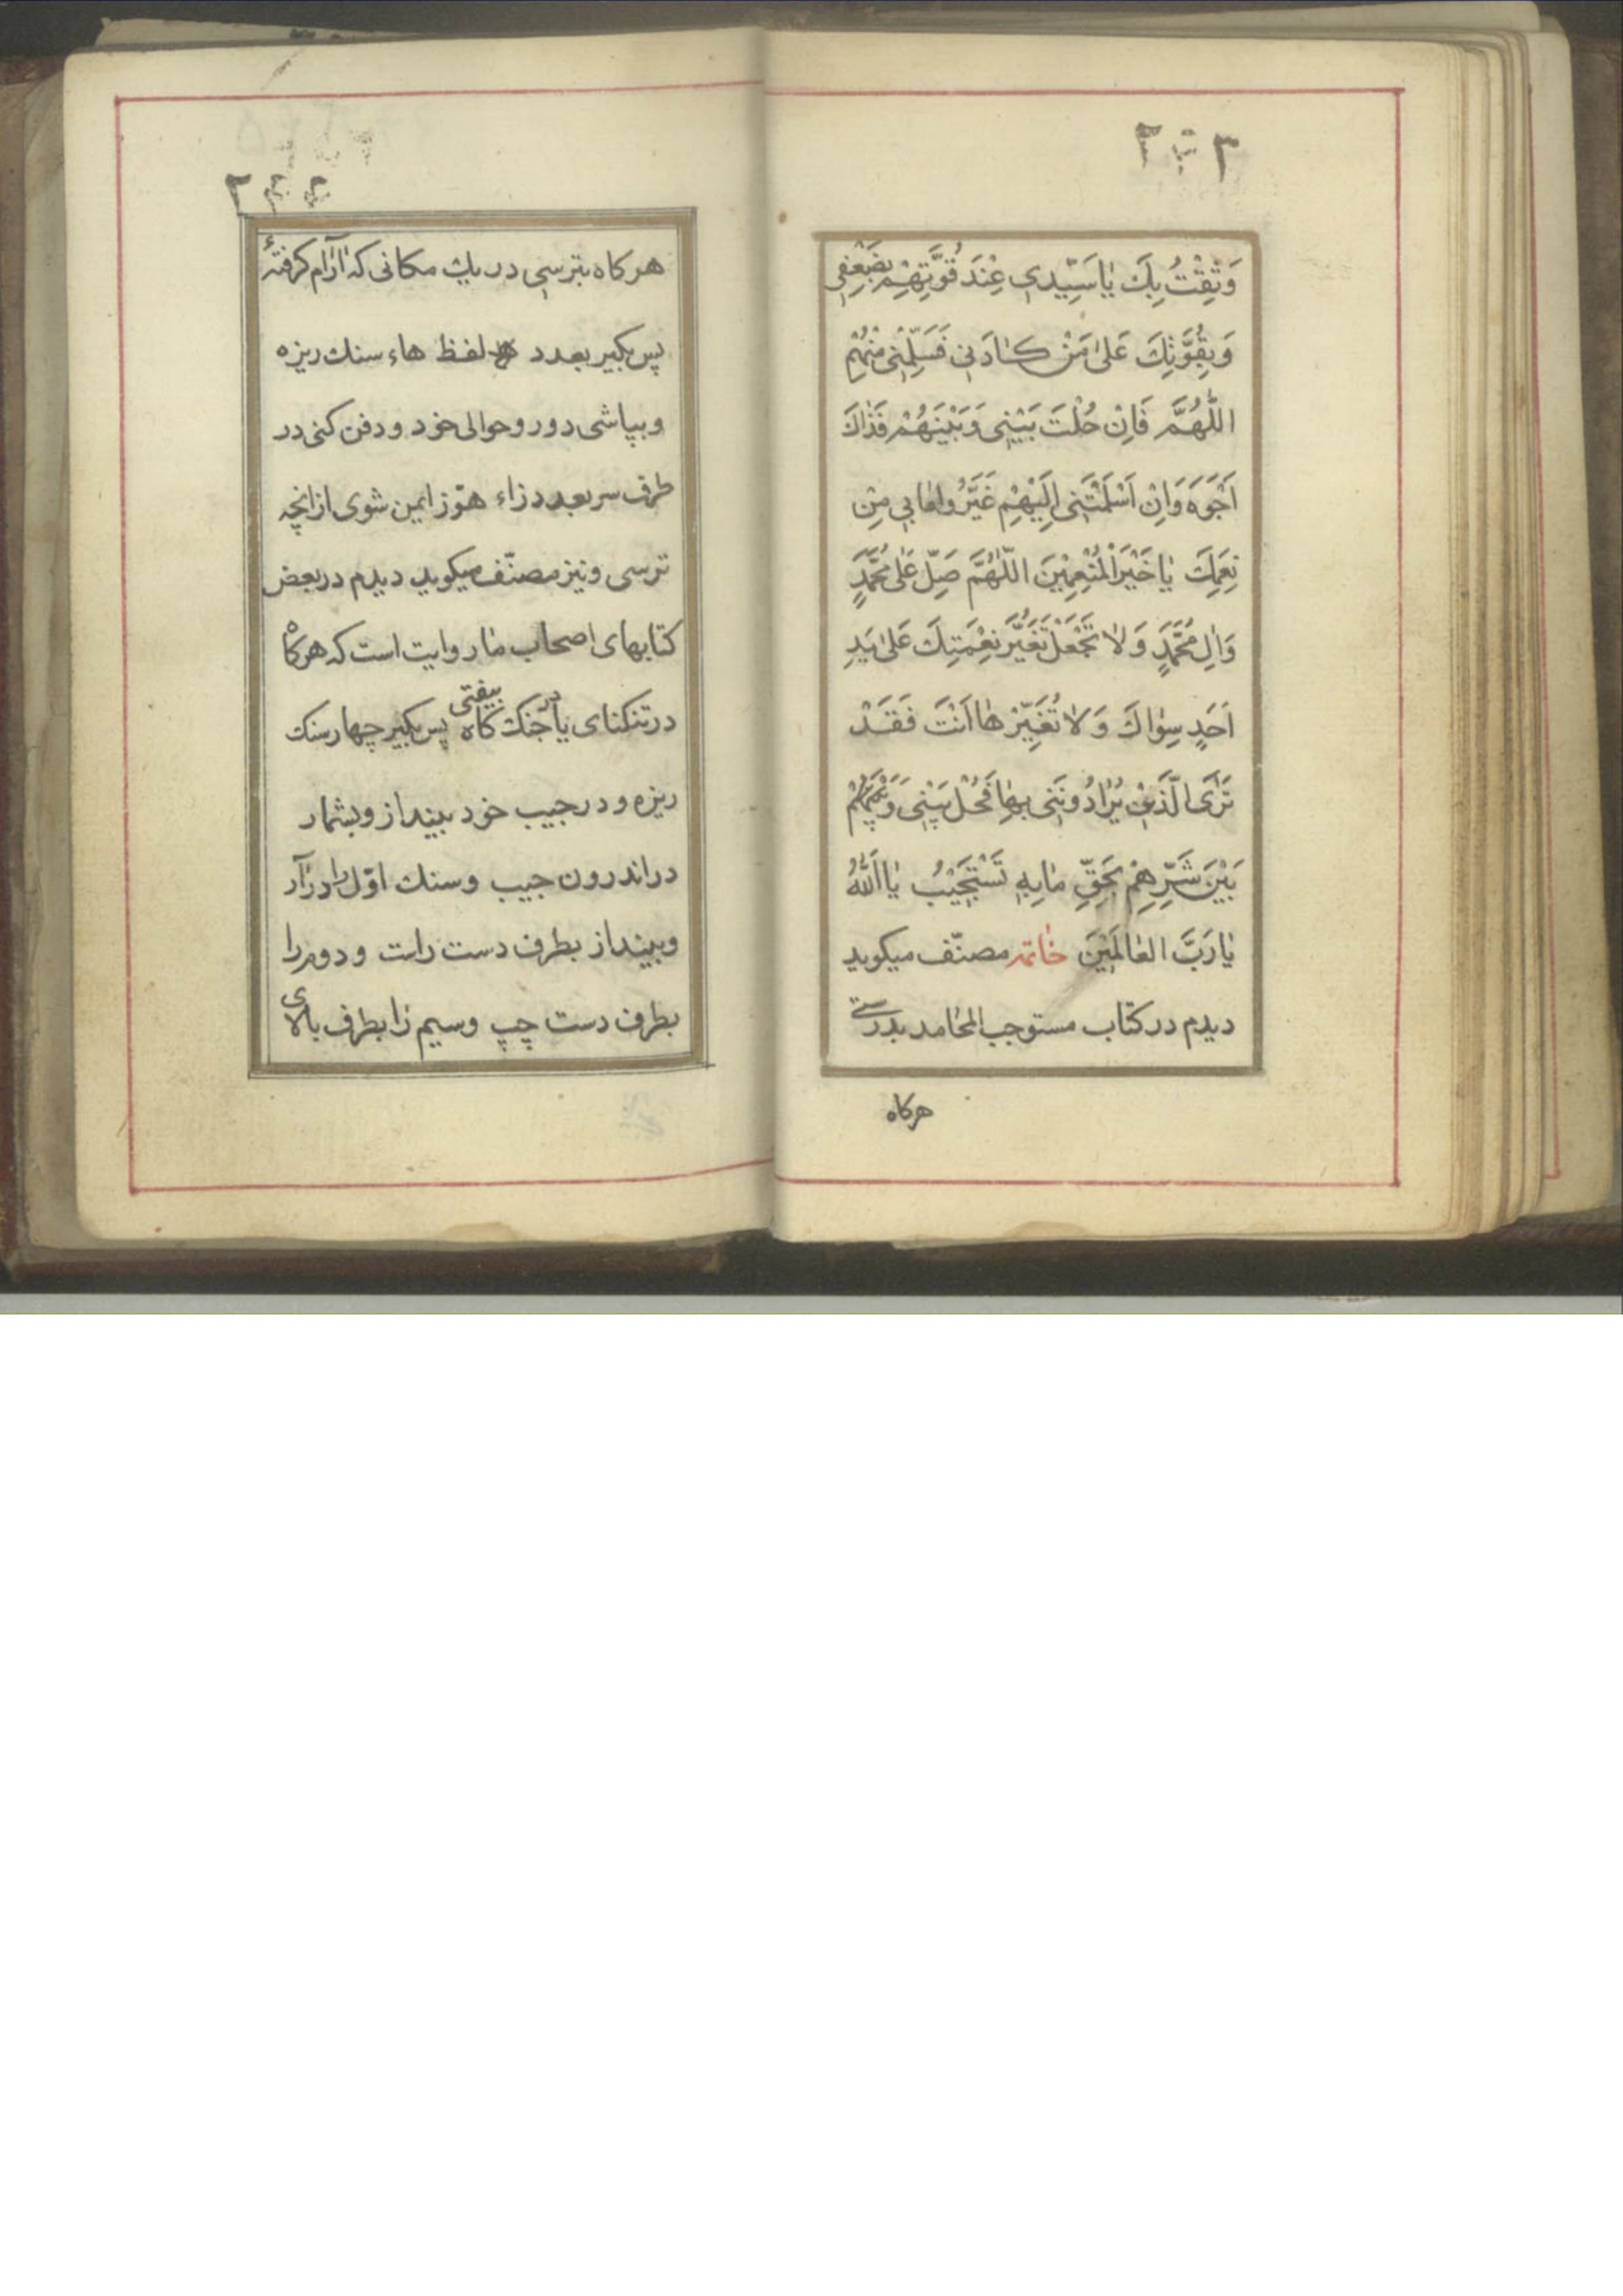 وَثِقْتُ بِكَ يٰا سَيِّدي عِنْدَ قُوَّتِهِمْ بِضَعْفي
وَبِقُوَّتِكَ عَلىٰ مَنْ كٰادَني فَسَلِّمْني مِنْهُمْ
اللّٰهُمَّ فَاِنْ حُلْتَ بَيْني وَبَيْنَهُمْ فَذٰاكَ
اَرْجُوهُ وَاِنْ اَسْلَمْتَني اِلَيْهِمْ غَيَّرُوا مٰا بي مِنْ
نِعَمِكَ يٰا خَيْرَ الْمُنْعِمينَ اللّٰهُمَّ صَلِّ عَلىٰ مُحَمَّدٍ
وَاٰلِ مُحَمَّدٍ وَلاٰ تَجْعَلْ تَغَيُّرَ نِعْمَتِكَ عَلىٰ يَدِ
اَحَدٍ سِوٰاكَ وَلاٰ تُغَيِّرْهٰا اَنْتَ فَقَدْ
تَرَى الَّذي يُرٰادُونَني بِهٰا فَحُلْ بَيْني وَ
بَيْنَ شَرِّهِمْ بِحَقِّ مٰا بِهِ تَسْتَجيبُ يٰا اَللّٰهُ
يٰا رَبَّ الْعٰالَمينَ خٰاتمه مصنّف ميكويد
ديدم در كتاب مستوجب المحٰامد بدرستی
هركاه
هركاه بترسی در يك مكانی كه آرٰام كرفتهٔ
پس بكير بعدد لفظ هاء سنك ريزه
وبپاشی دور وحوالی خود ودفن كنی در
طرف سر بعدد زاء هوّز ايمن شوی ازانچه
ترسی ونيز مصنّف ميكويد ديدم در بعض
كتابهای اصحاب مٰا روايت است كه هركاه
در تنكنای يا در جنك كاه بيفتی پس بكير چهار سنك
ريزه ودر جيب خود بينداز وبشمار
در اندرون جيب وسنك اوّل را در آر
وبينداز بطرف دست راست ودوم را
بطرف دست چپ وسيم رٰا بطرف بالای